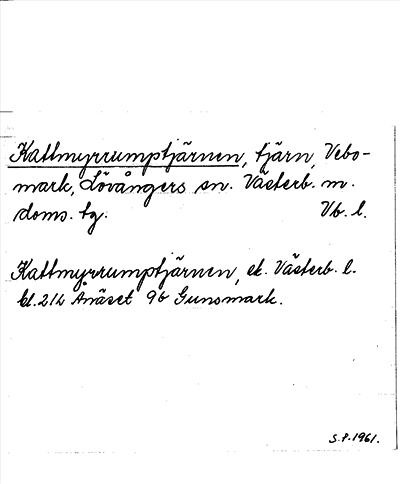 Kattmyrrumptjärnen, tjärn, Vebo-
mark, Lövångers sn. Västerb. m.
doms. tg. Vb. l.
Kattmyrrumptjärnen, ek. Västerb. l.
bl. 212 Ånäset 9b Gunsmark.
S.P. 1961.